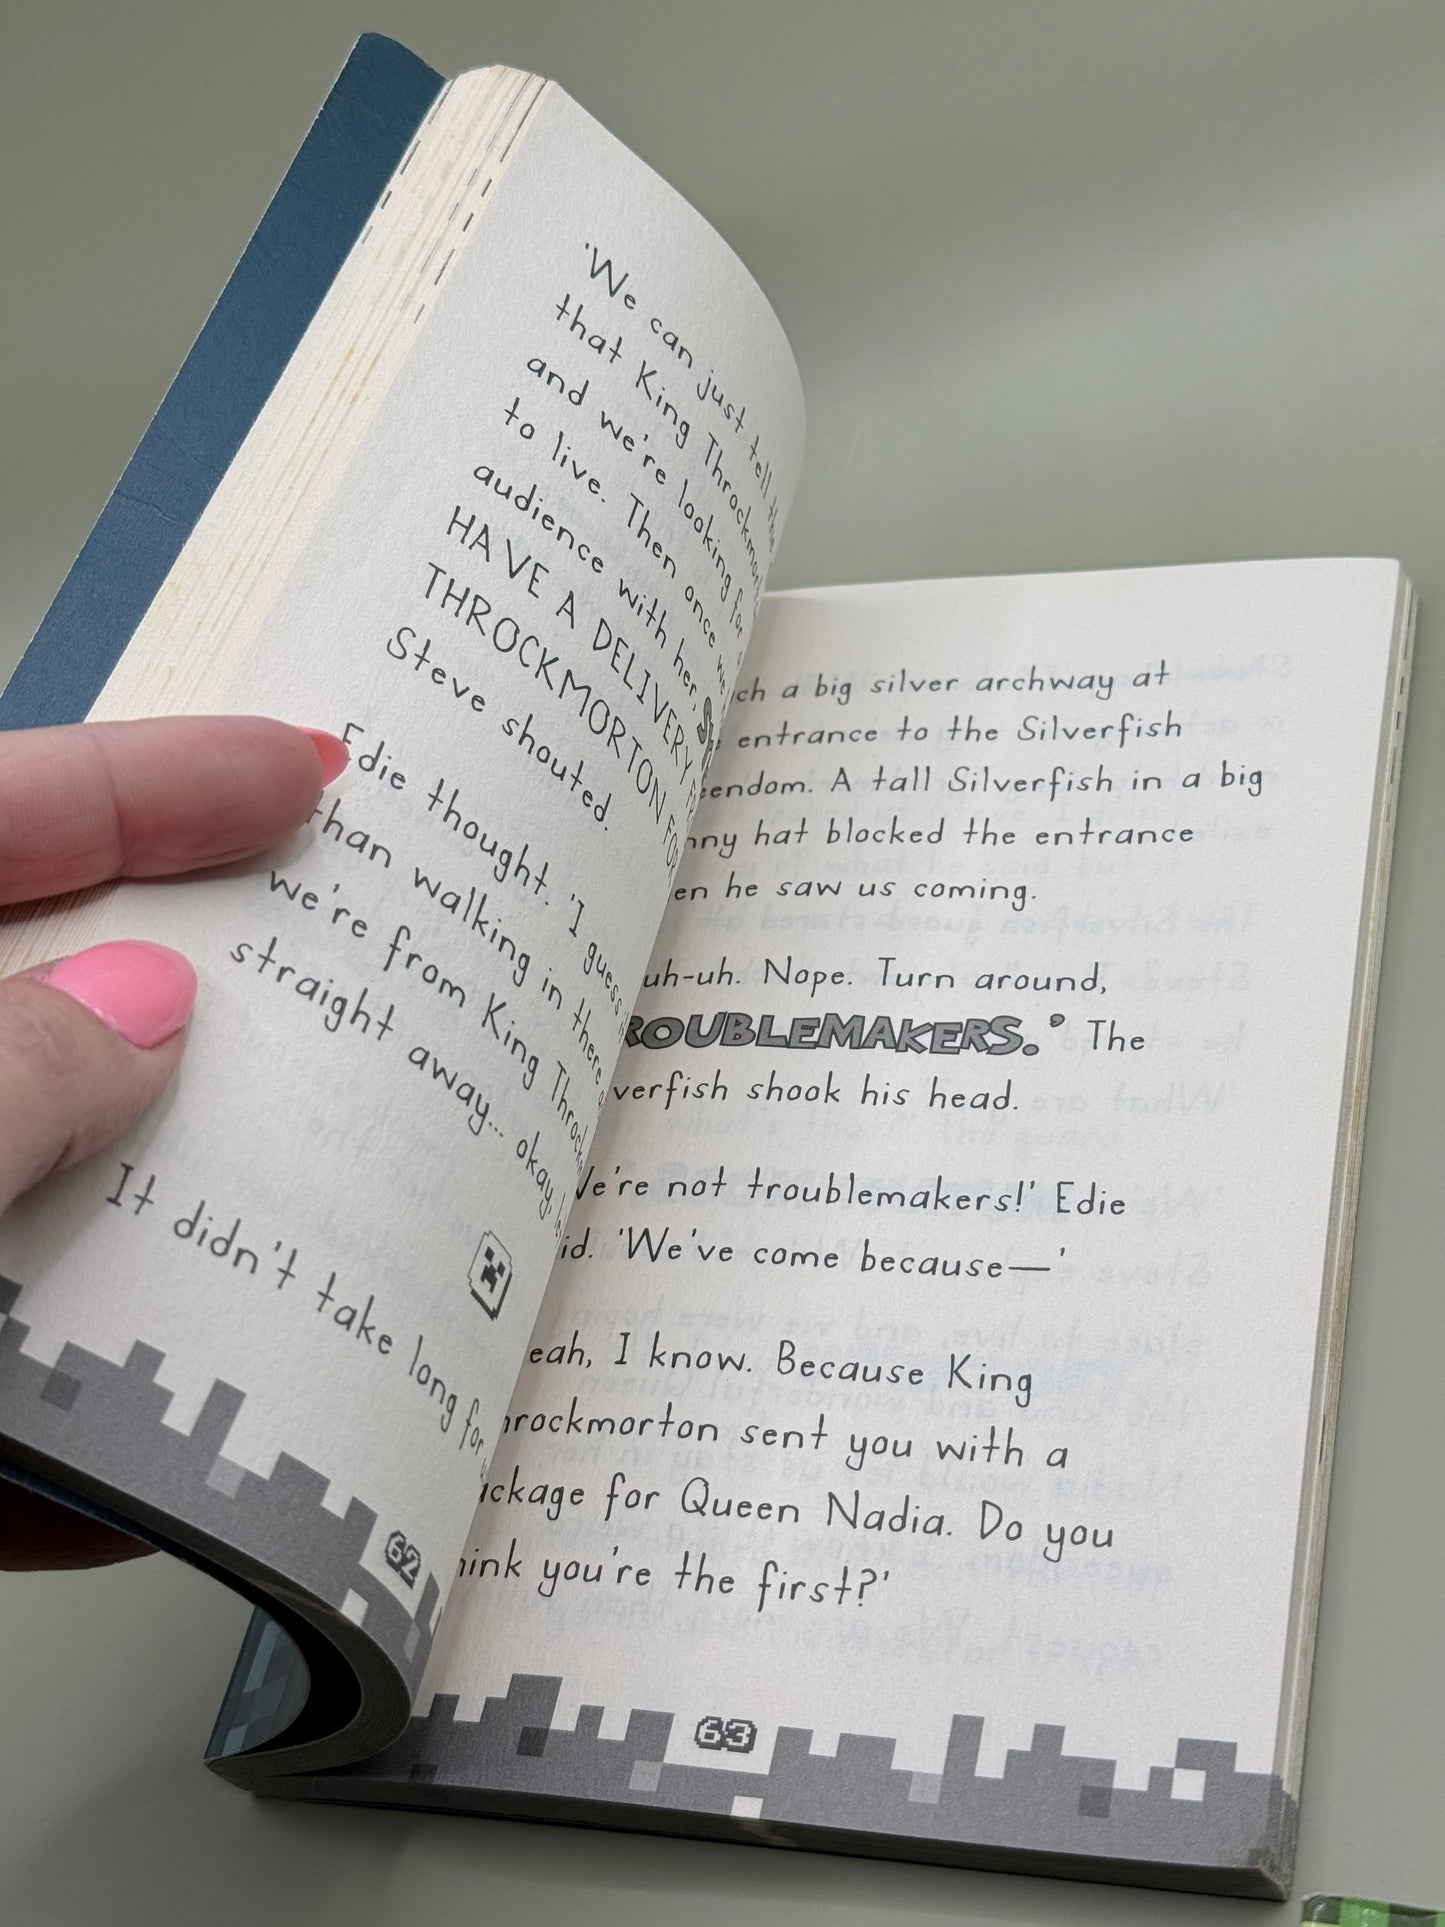 'We can just tell the
that King Throckmorton
and we're looking for a
to live. Then once we
audience with her,
HAVE A DELIVERY
THROCKMORTON FOR
Steve shouted.
Edie thought. 'I guess
than walking in there
we're from King
straight away... okay,
It didn't take long for
62
a big silver archway at
entrance to the Silverfish
A tall Silverfish in a big
hat blocked the entrance
he saw us coming.
uh-uh. Nope. Turn around,
ROUBLEMAKERS.' The
verfish shook his head.
e're not troublemakers!' Edie
id. 'We've come because—'
eah, I know. Because King
hrockmorton sent you with a
ackage for Queen Nadia. Do you
hink you're the first?'
63